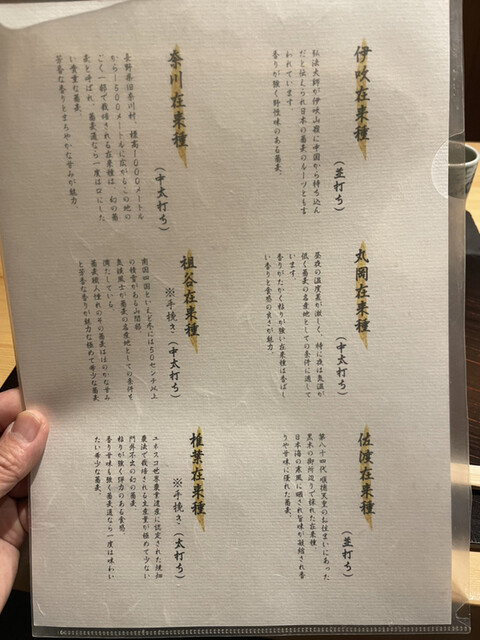 伊吹在来種
(並打ち)
弘法大師が伊吹山麓に中国から持ち込ん
だと伝えられ日本の蕎麦のルーツとも言
われています
香りが強く野性味のある蕎麦。
奈川在来種
(中太打ち)
長野県旧奈川村 標高1000メートル
から1500メートルに広がるこの地の
ごく一部で栽培される在来種は 幻の蕎
麦と呼ばれ、蕎麦通なら一度は口にした
い貴重な蕎麦。
芳香な香りとまろやかな甘みが魅力。
丸岡在来種
(中太打ち)
昼夜の温度差が激しく、特に夜は気温が
低く蕎麦の名産地としての条件に適して
います。
香りがたかく粘りが強い在来種は香ばし
い香りと食感の良さが魅力。
祖谷在来種
※手挽き(中太打ち)
南国四国といえど冬には50センチ以上
の積雪がある山間部
気候風土が蕎麦の名産地としての条件を
満たしている。
蕎麦職人憧れのその蕎麦はほのかな甘み
と芳香な香りが魅力な極めて希少な蕎麦
佐渡在来種
(並打ち)
第八十四代順徳天皇のお住まいにあった
黒木の御所辺りで採れた在来種。
日本海の寒風に晒され旨味が凝縮され香
りや甘味に優れた蕎麦。
椎葉在来種
※手挽き(太打ち)
ユネスコ世界農業遺産に認定された焼畑
農法で栽培される生産量が極めて少ない
門外不出の幻の蕎麦
粘りが強く弾力のある食感、
香り甘味も強く蕎麦通なら一度は味わい
たい希少な蕎麦。